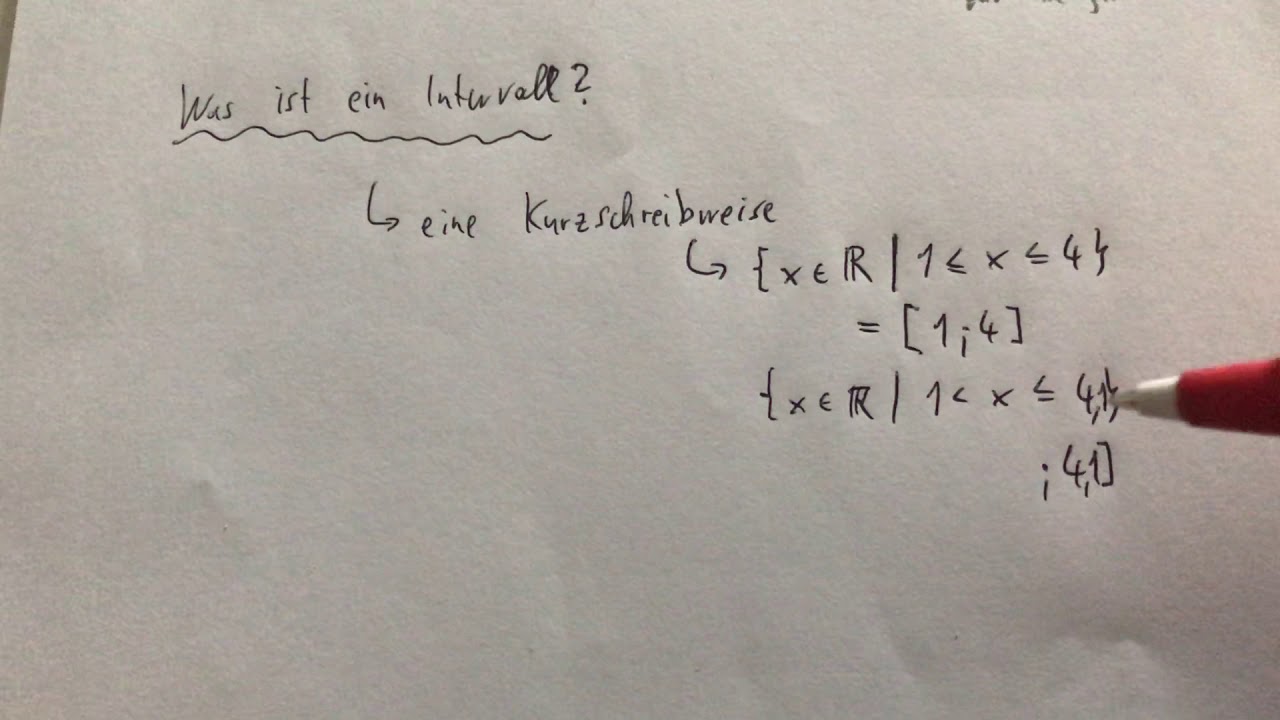 Was ist ein Intervall?
↳ eine Kurzschreibweise
↳ {x ∈ ℝ | 1 ≤ x ≤ 4}
= [1;4]
{x ∈ ℝ | 1 < x ≤ 4,1}
;4,1]